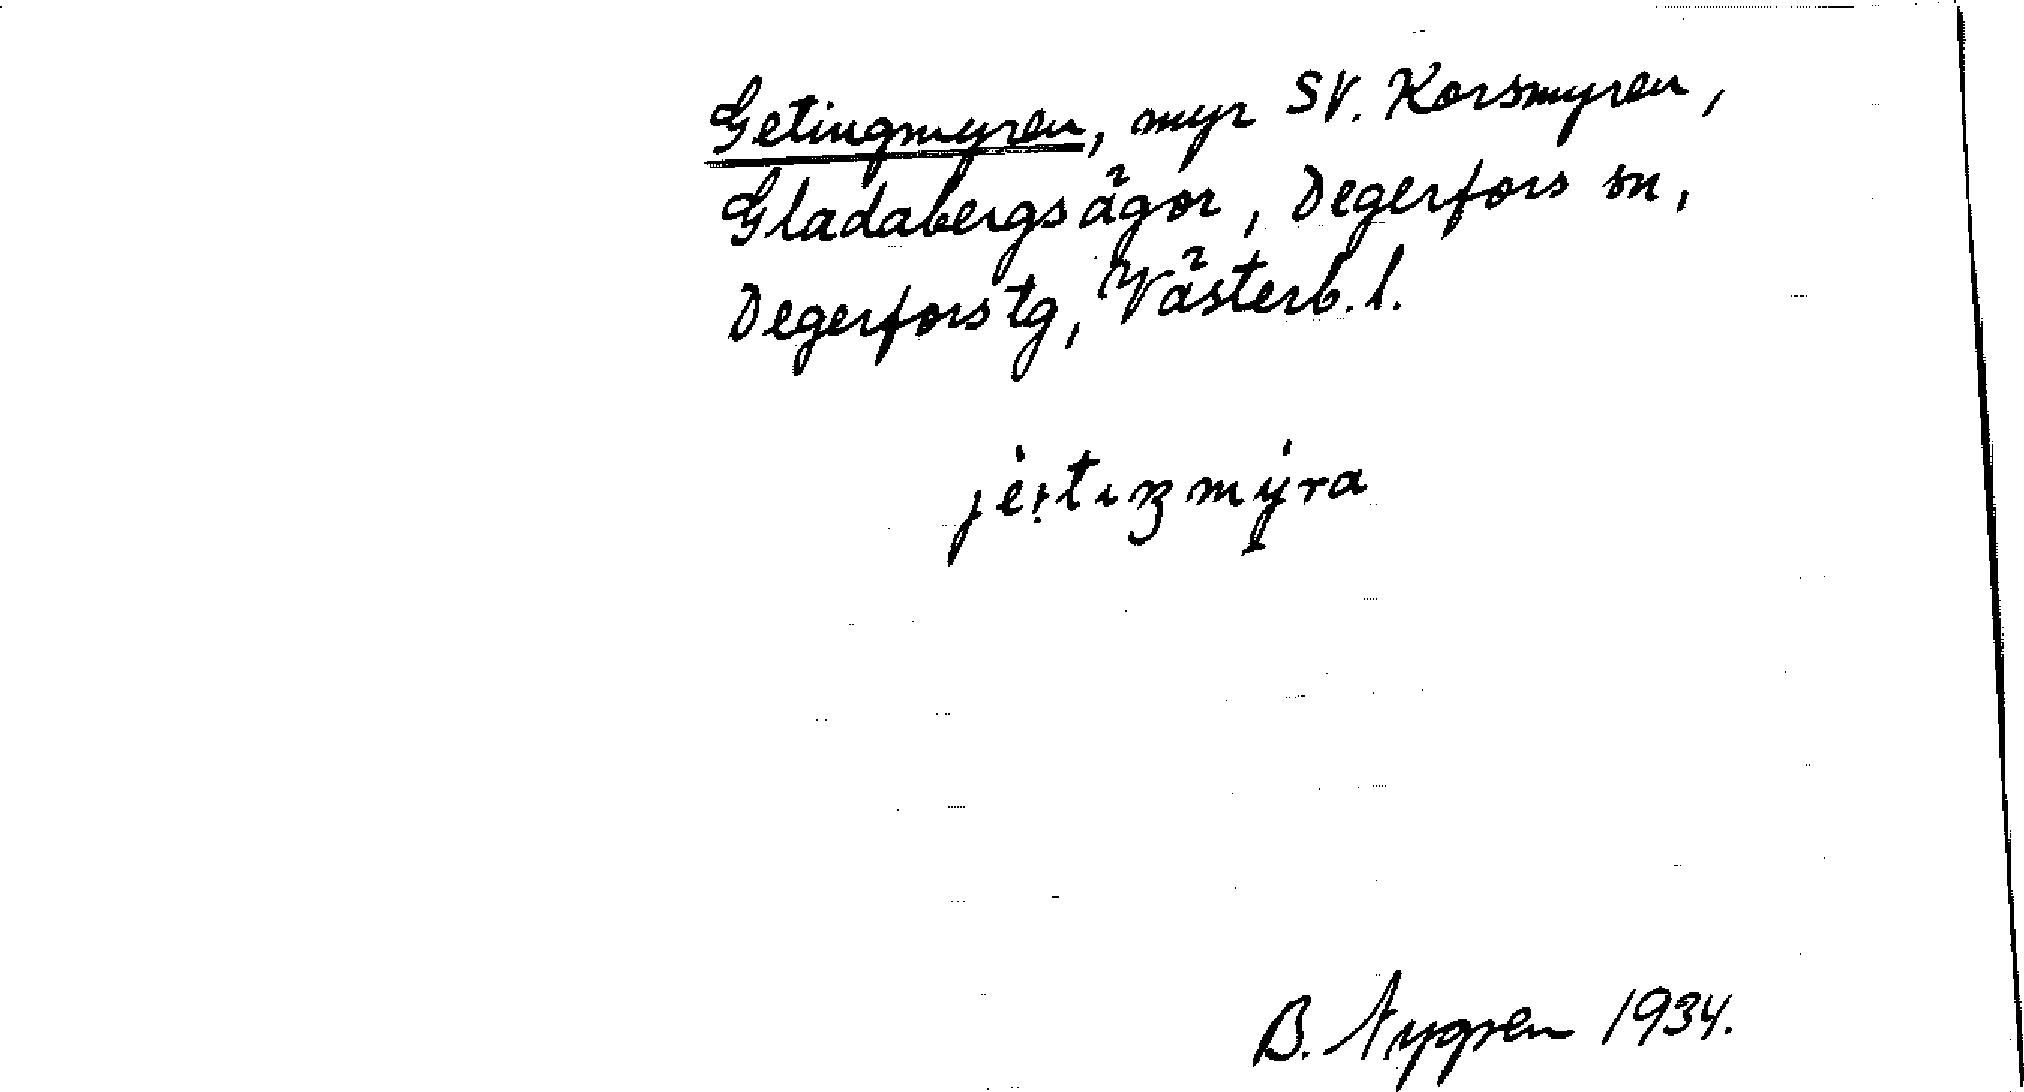 Getingmyren, myr SV. Korsmyren,
Gladabergs ägor, Degerfors sn,
Degerfors tg, Västerb. l.
B. Nygren 1934.